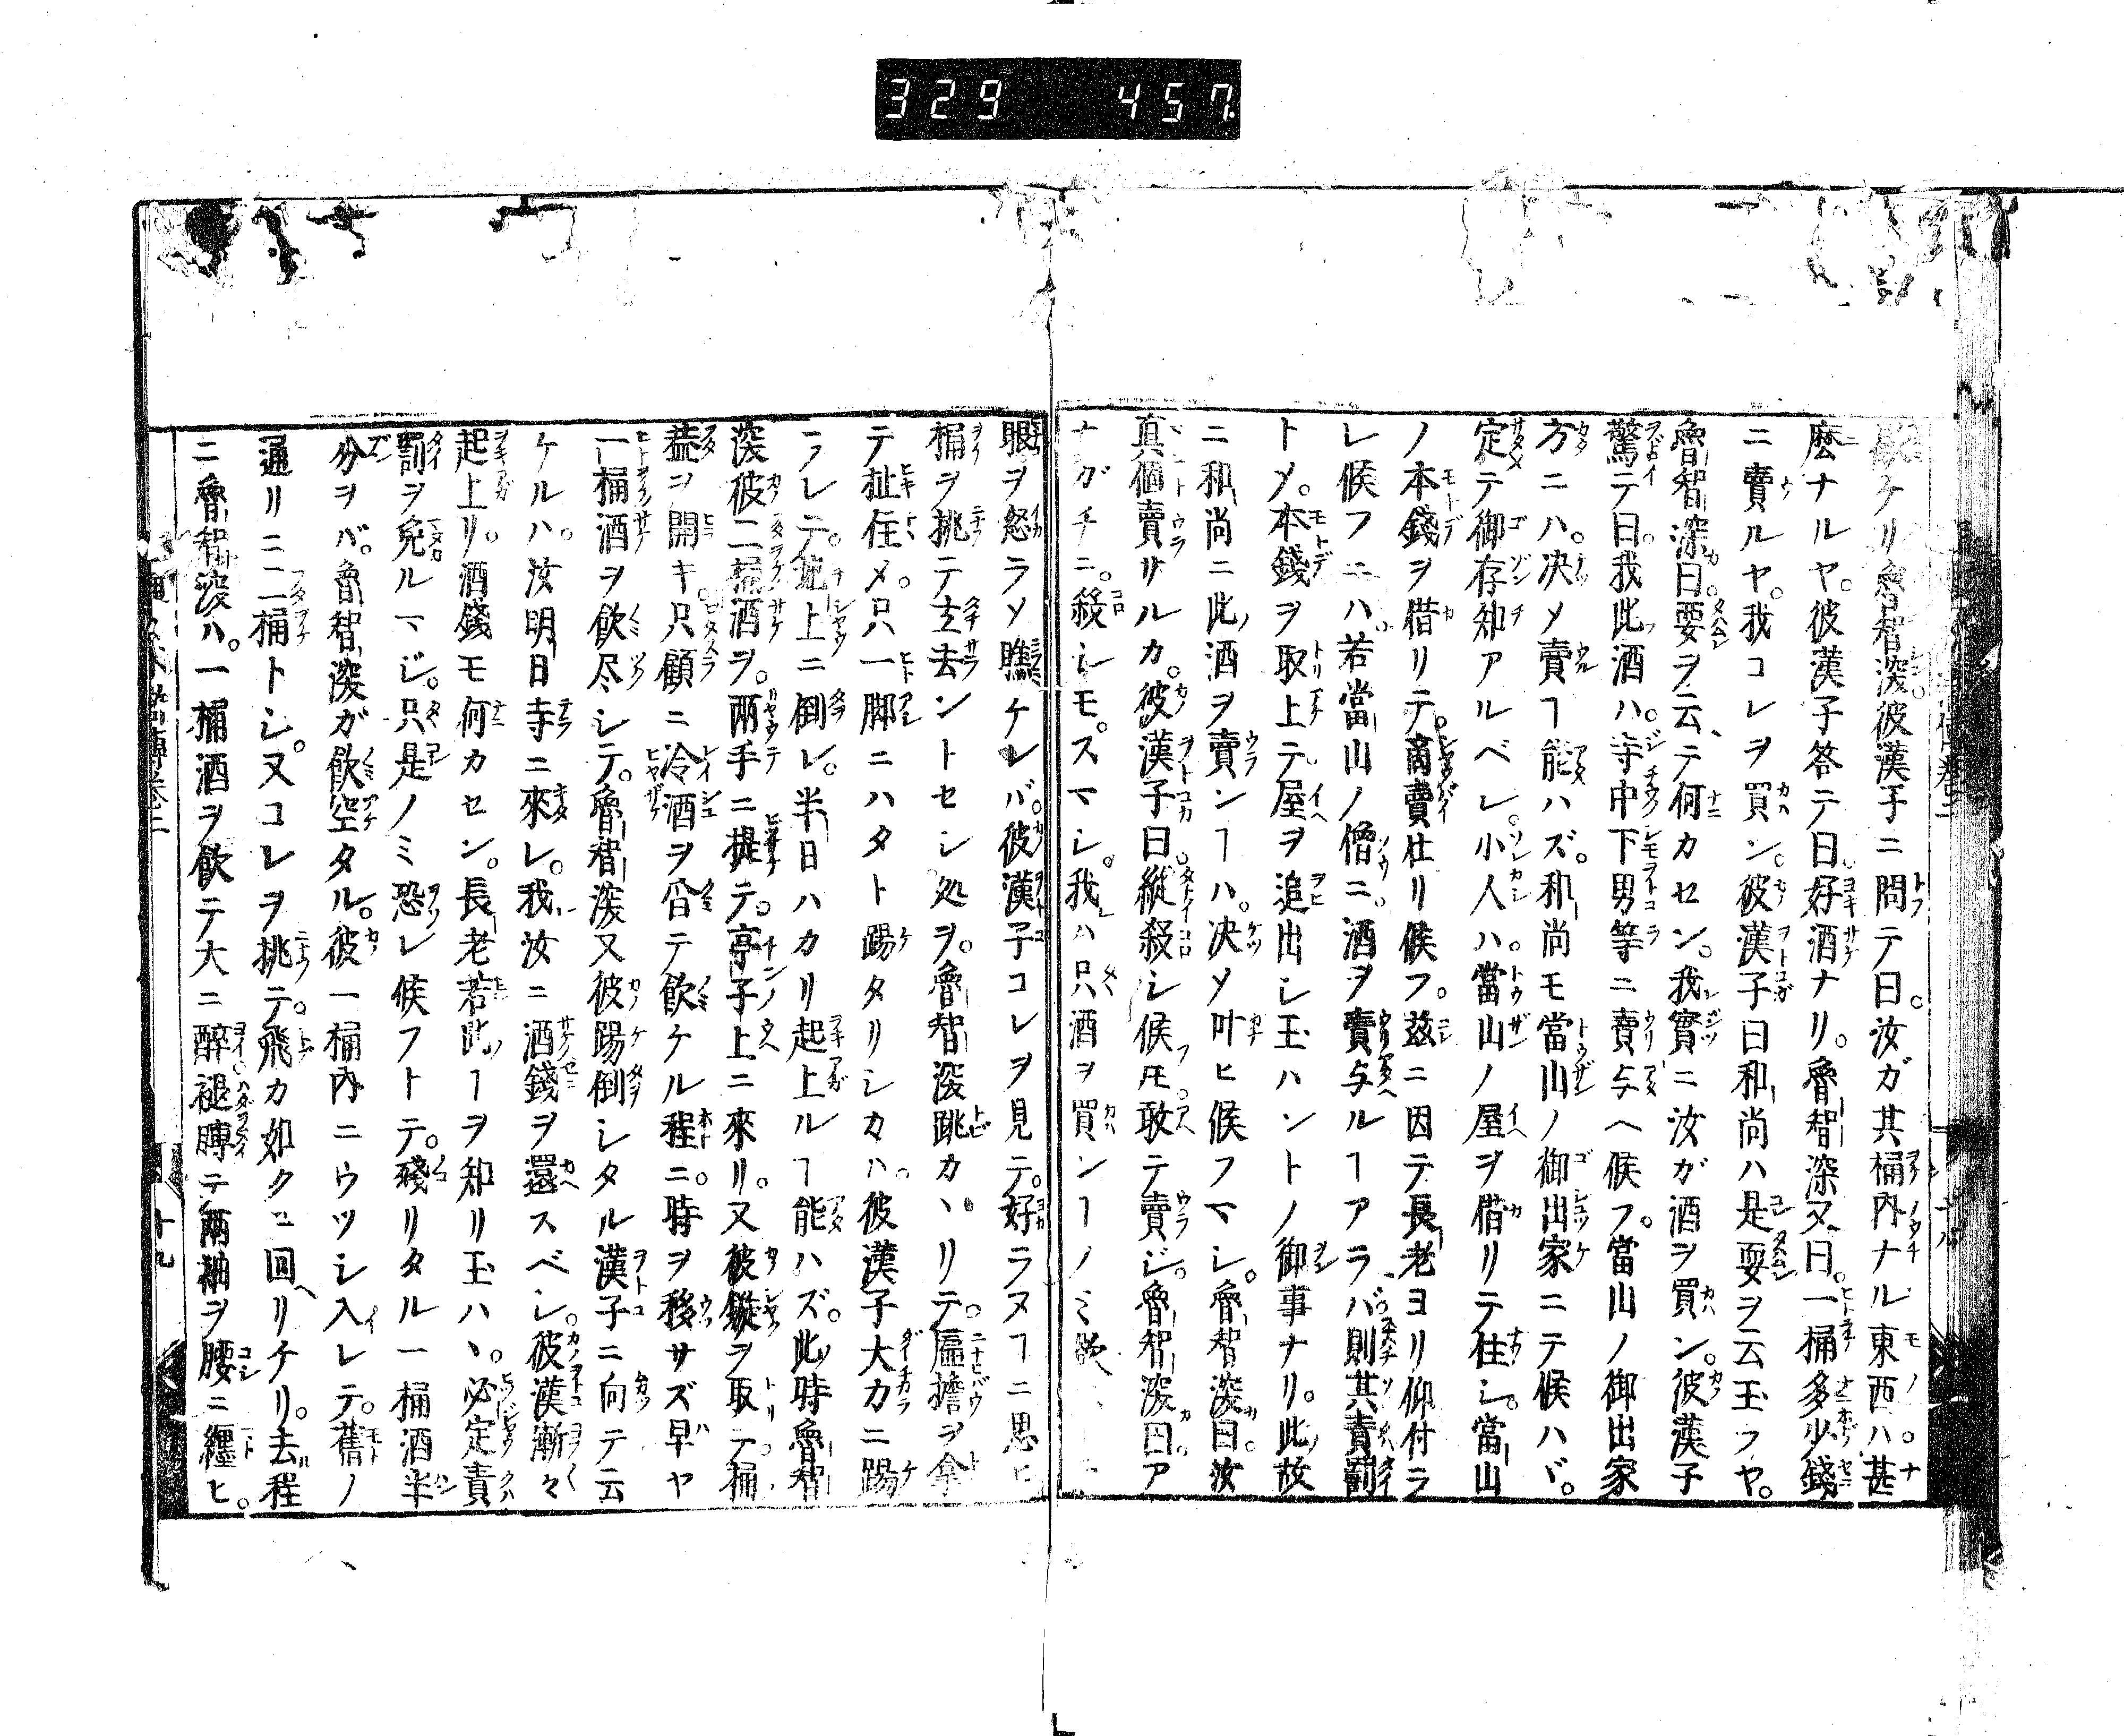 329 457
歇ケリ魯智深彼漢子ニ問テ曰。汝ガ其桶内ナル東西ハ甚
麼ナルヤ。彼漢子答テ曰。好酒ナリ。魯智深又曰。一桶多少錢
ニ賣ルヤ。我コレヲ買ン。彼漢子曰和尚ハ是耍ヲ云玉フヤ。
魯智深曰。耍ヲ云テ何カセン。我實ニ汝ガ酒ヲ買ン。彼漢子
驚テ曰。我此酒ハ。寺中下男等ニ賣与ヘ候フ。當山ノ御出家
方ニハ。决メ賣ヿ能ハズ。和尚モ當山ノ御出家ニテ候ハヾ。
定テ御存知アルベレ。小人ハ當山ノ屋ヲ借リテ住シ。當山
ノ本錢ヲ借リテ。商賣仕リ候フ。茲ニ因テ長老ヨリ仰付ラ
レ候フニハ。若當山ノ僧ニ。酒ヲ賣与ルヿアラバ則其責罰
トメ。本錢ヲ取上テ。屋ヲ追出シ玉ハントノ御事ナリ。此故
ニ和尚ニ此酒ヲ賣ンヿハ。决メ叶ヒ候フマシ。魯智深曰。汝
真個賣サルカ。彼漢子曰。縱殺シ候フ𪜈敢テ賣ジ。魯智深曰。ア
ナガチニ。殺シモ。スマシ。我ハ只酒ヲ買ンヿノミ欲
眼ヲ怒ラメ瞧ケレバ。彼漢子コレヲ見テ。好ラヌヿニ思ヒ
桶ヲ挑テ去ントセシ処ヲ。魯智深跳カヽリテ。匾擔ヲ拿
テ扯住メ。只一脚ニハタト踢タリシカハ。彼漢子大カニ踢
ラレテ。地上ニ倒レ。半日ハカリ起上ルヿ能ハズ。此時魯智
深彼二桶酒ヲ。兩手ニ提テ。亭子上ニ來リ。又彼鏇ヲ取テ。桶
葢ヲ開キ只顧ニ冷酒ヲ舀テ飲ケル程ニ。時ヲ移サズ早ヤ
一桶酒ヲ飲尽シテ。魯智深又彼踢倒シタル漢子ニ向テ云
ケルハ。汝明日寺ニ來レ。我汝ニ酒錢ヲ還スベシ。彼漢漸々
起上リ。酒錢モ何カセン。長老若此ヿヲ知リ玉ハヽ。必定責
罰ヲ免ルマジ。只是ノミ恐レ候フトテ。殘リタル一桶酒半
分ヲバ。魯智深ガ飲空タル。彼一桶内ニウツシ入レテ。舊ノ
通リニ二桶トシ。又コレヲ挑テ。飛カ如クニ回リチリ。去程
ニ魯智深ハ。一桶酒ヲ飲テ大ニ醉。褪膊テ兩袖ヲ腰ニ纏ヒ。
十九